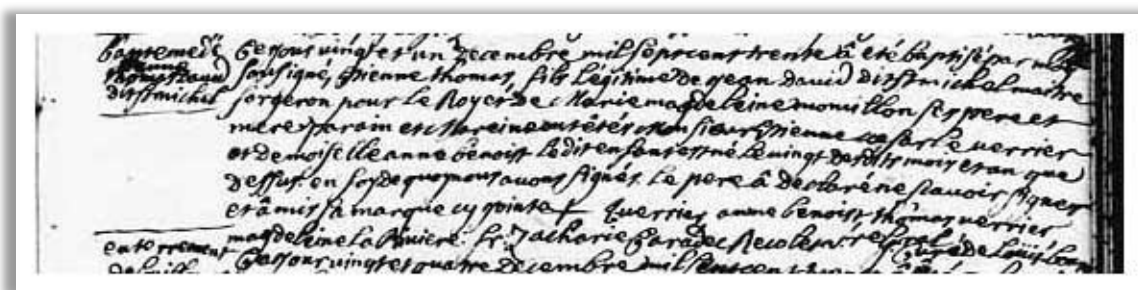 baptemede Ce jour vingt et un decembre mil sept cent trente â été bâptisé par moy
Etienne
thomas david soussigné, Etienne thomas, fils Legitime de jean david dit st michel maitre
dit st michel forgeron pour Le Roy et de Marie magdeleine monvillon ses pere et
mere parain et Mareine ont étés Monsieur Etienne verrier
et demoiselle anne benoist Ledit enfant est né Le vingt desdits mois et an que
dessus. en foy de quoy nous avons signés. Le pere â déclaré ne sçavoir signer
et â mis sa marque cy jointe + verrier anne benoist thomas verrier
magdeleine La Riviere. fr. Zacharie Caradec Recolet
enterrement Ce jour vingt et quatre decembre mil sept cent